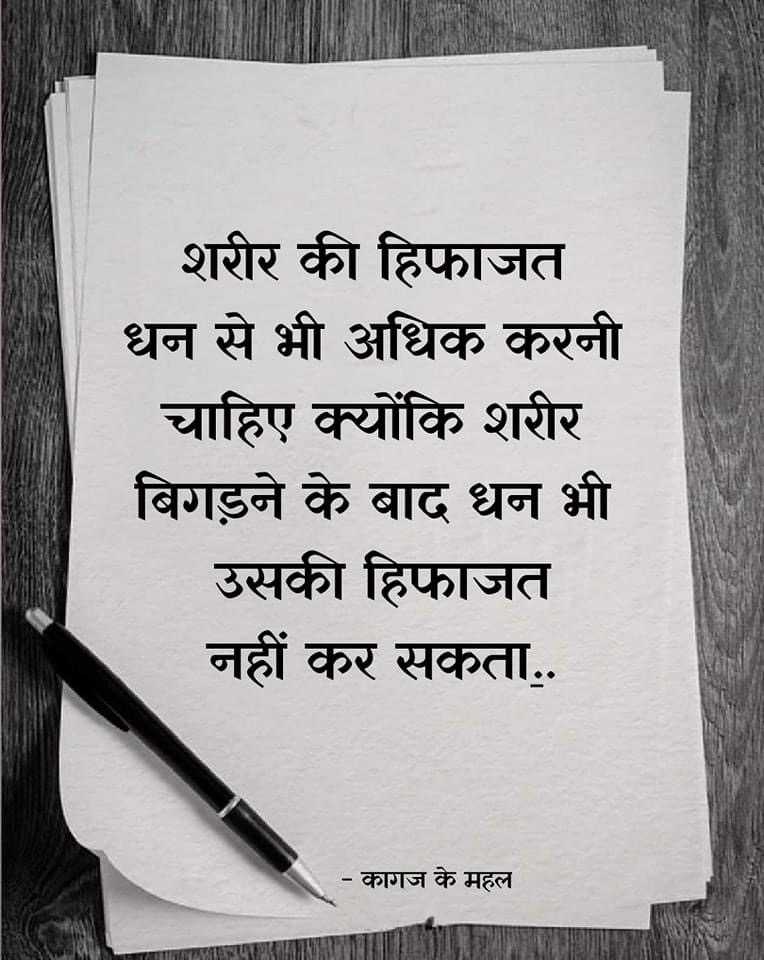 शरीर की हिफाजत
धन से भी अधिक करनी
चाहिए क्योंकि शरीर
बिगड़ने के बाद धन भी
उसकी हिफाजत
नहीं कर सकता..
- कागज के महल